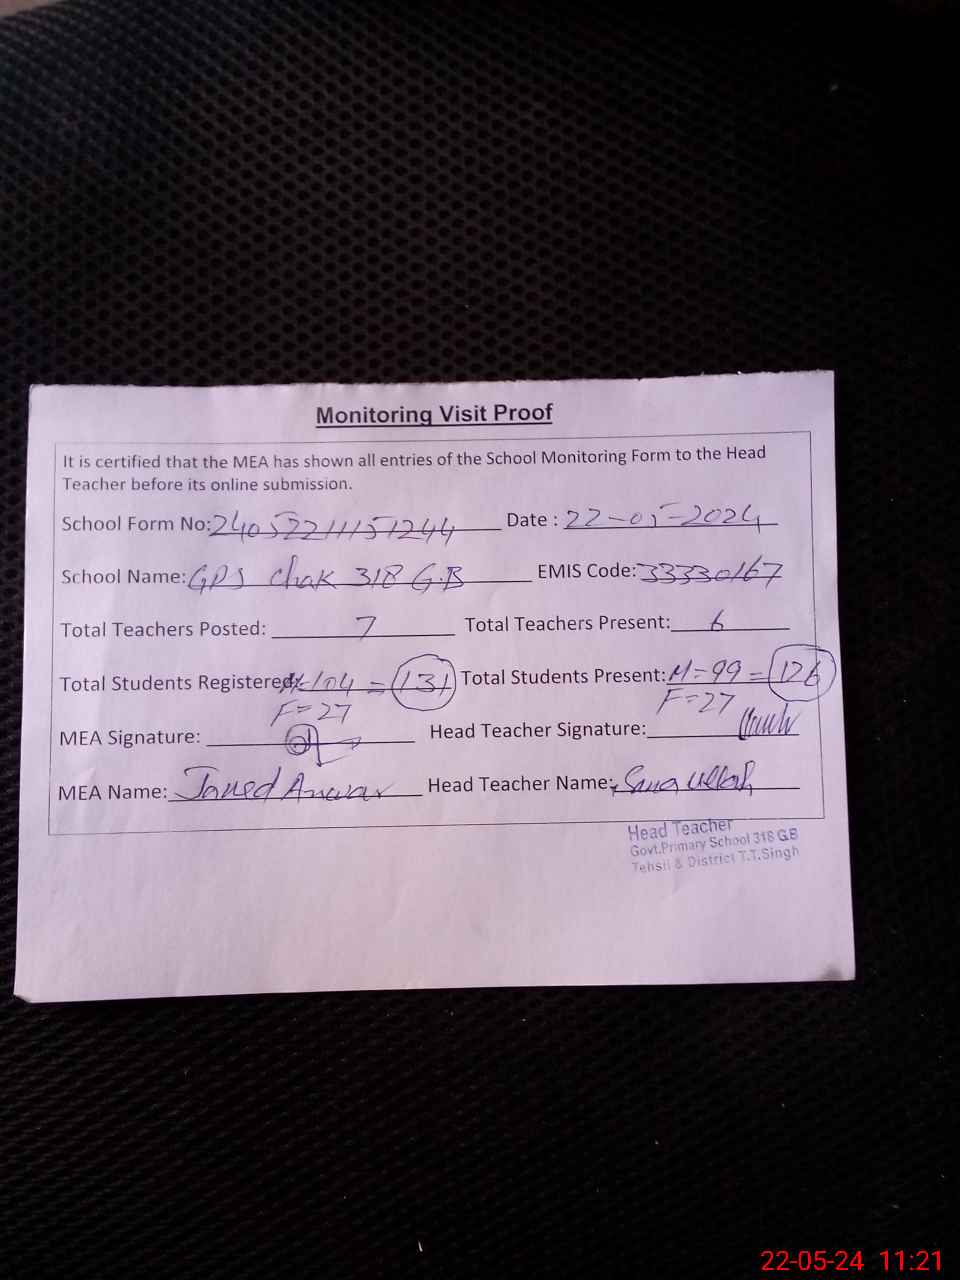 Monitoring Visit Proof
It is certified that the MEA has shown all entries of the School Monitoring Form to the Head
Teacher before its online submission.
School Form No: 24052211151244 Date : 22-05-2024
School Name: GPS Chak 318 G.B EMIS Code: 33330167
Total Teachers Posted: 7 Total Teachers Present: 6
Total Students Registered: M-104 = 131 Total Students Present: M-99 = 126
F=27 F=27
MEA Signature: Head Teacher Signature:
MEA Name: Javed Anwar Head Teacher Name: Sana Ullah
Head Teacher
Govt.Primary School 318 GB
Tehsil & District T.T.Singh
22-05-24 11:21